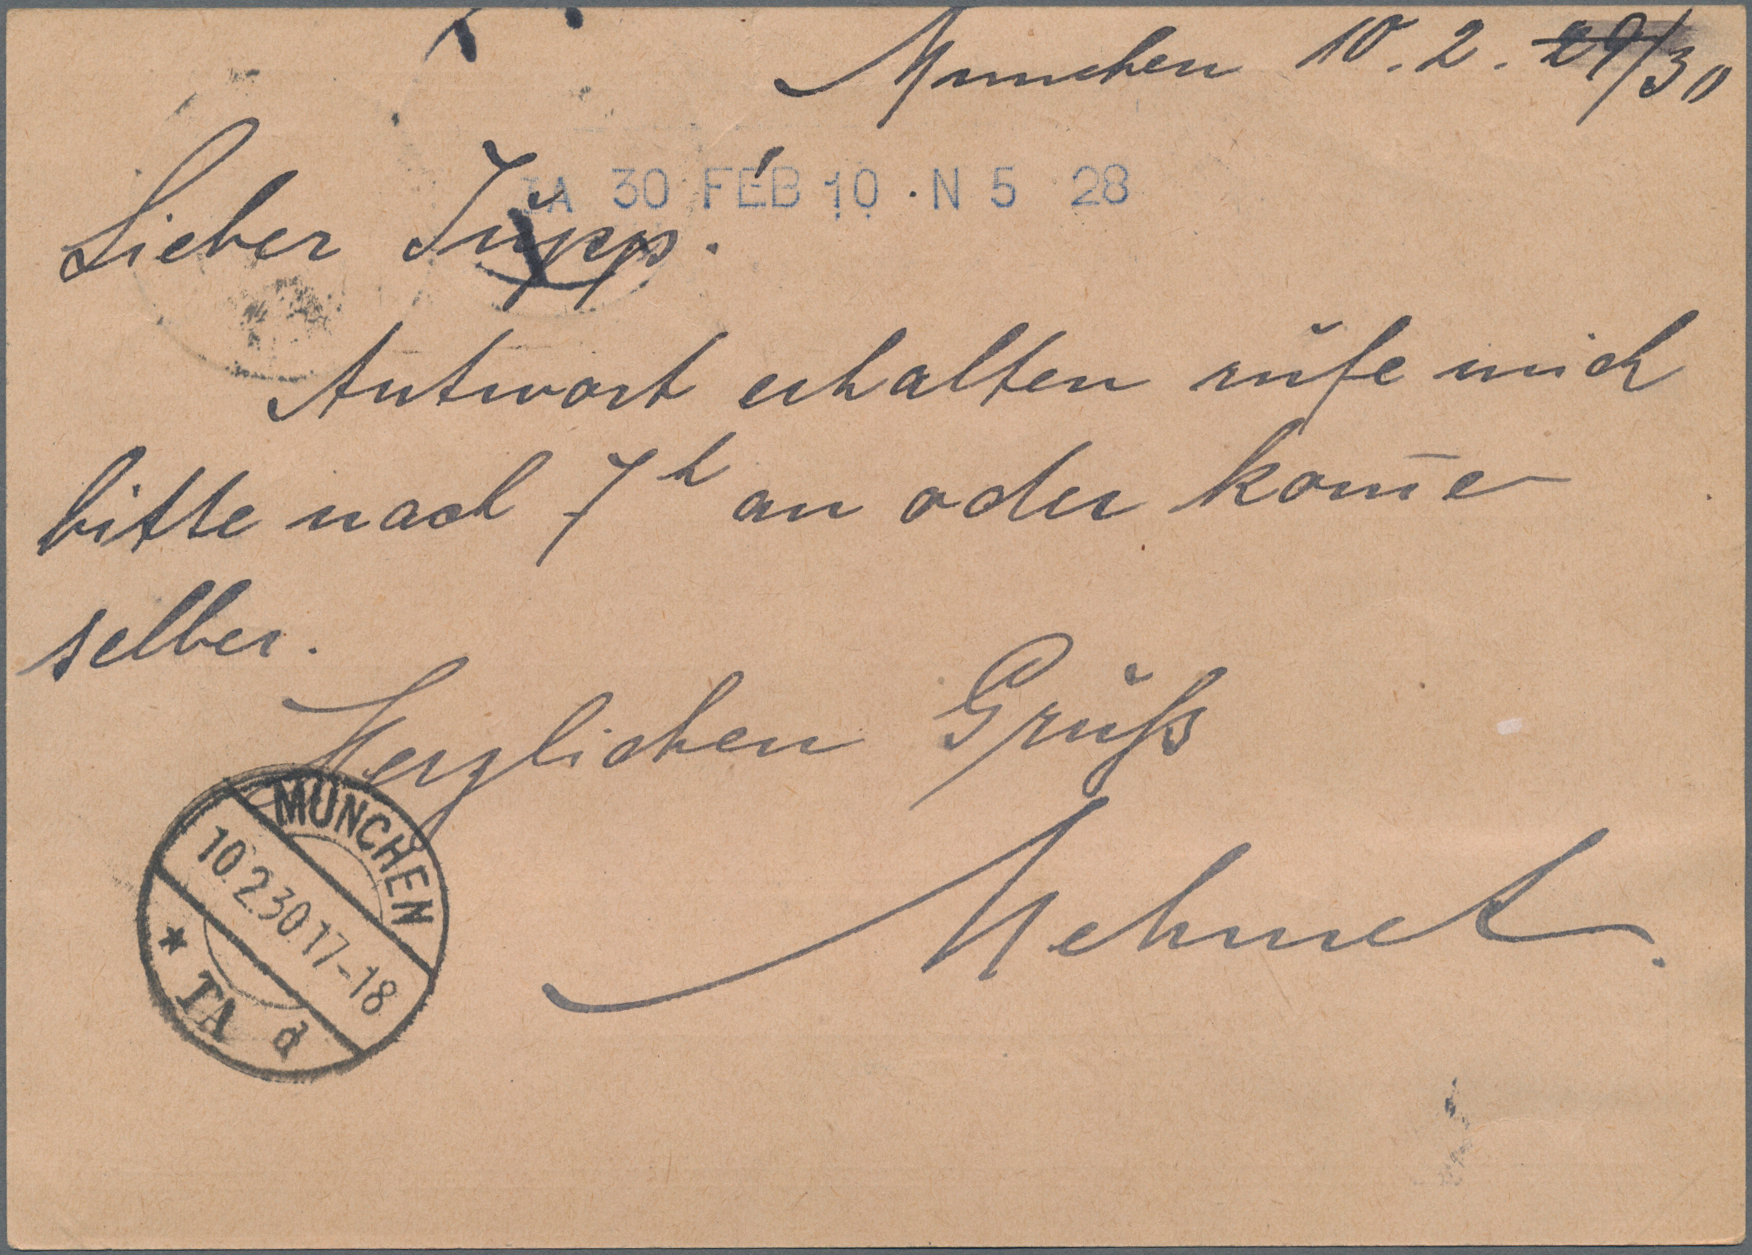 München 10.2. 29/30
TA 30 FEB 10 · N 5 28
Lieber Jupp!
Antwort erhalten rufe mich
bitte nach 7h an oder kom̄e
selber.
Herzlichen Gruß
Mehmet.
MÜNCHEN
10.2.30.17-18
* TA d